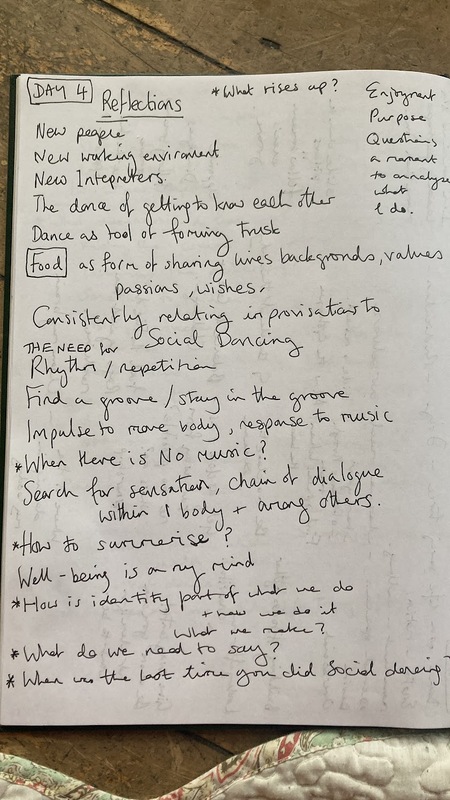 DAY 4
Reflections
*What rises up?
Enjoyment
Purpose
Questions
a moment
to annalyse
what
I do.
New people
New working enviroment
New Intepreters.
The dance of getting to know each other
Dance as tool of forming trust
Food as form of sharing lives backgronds, values
passions, wishes.
Consistently relating inprovisation to
THE NEED for Social Dancing
Rhythm / repetition
Find a groove / stay in the groove
Impulse to move body, response to music
*When there is No music?
Search for sensation, chain of dialogue
within 1 body + among others.
*How to summerise?
Well-being is on my mind
*How is identity part of what we do
+ how we do it
What we make?
*What do we need to say?
*When was the last time you did Social dancing?